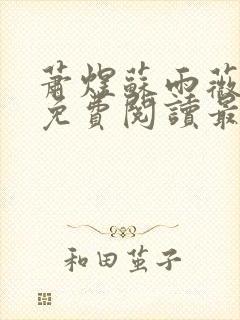 蕭煜蘇雨薇
免費閱讀最
和田茧子